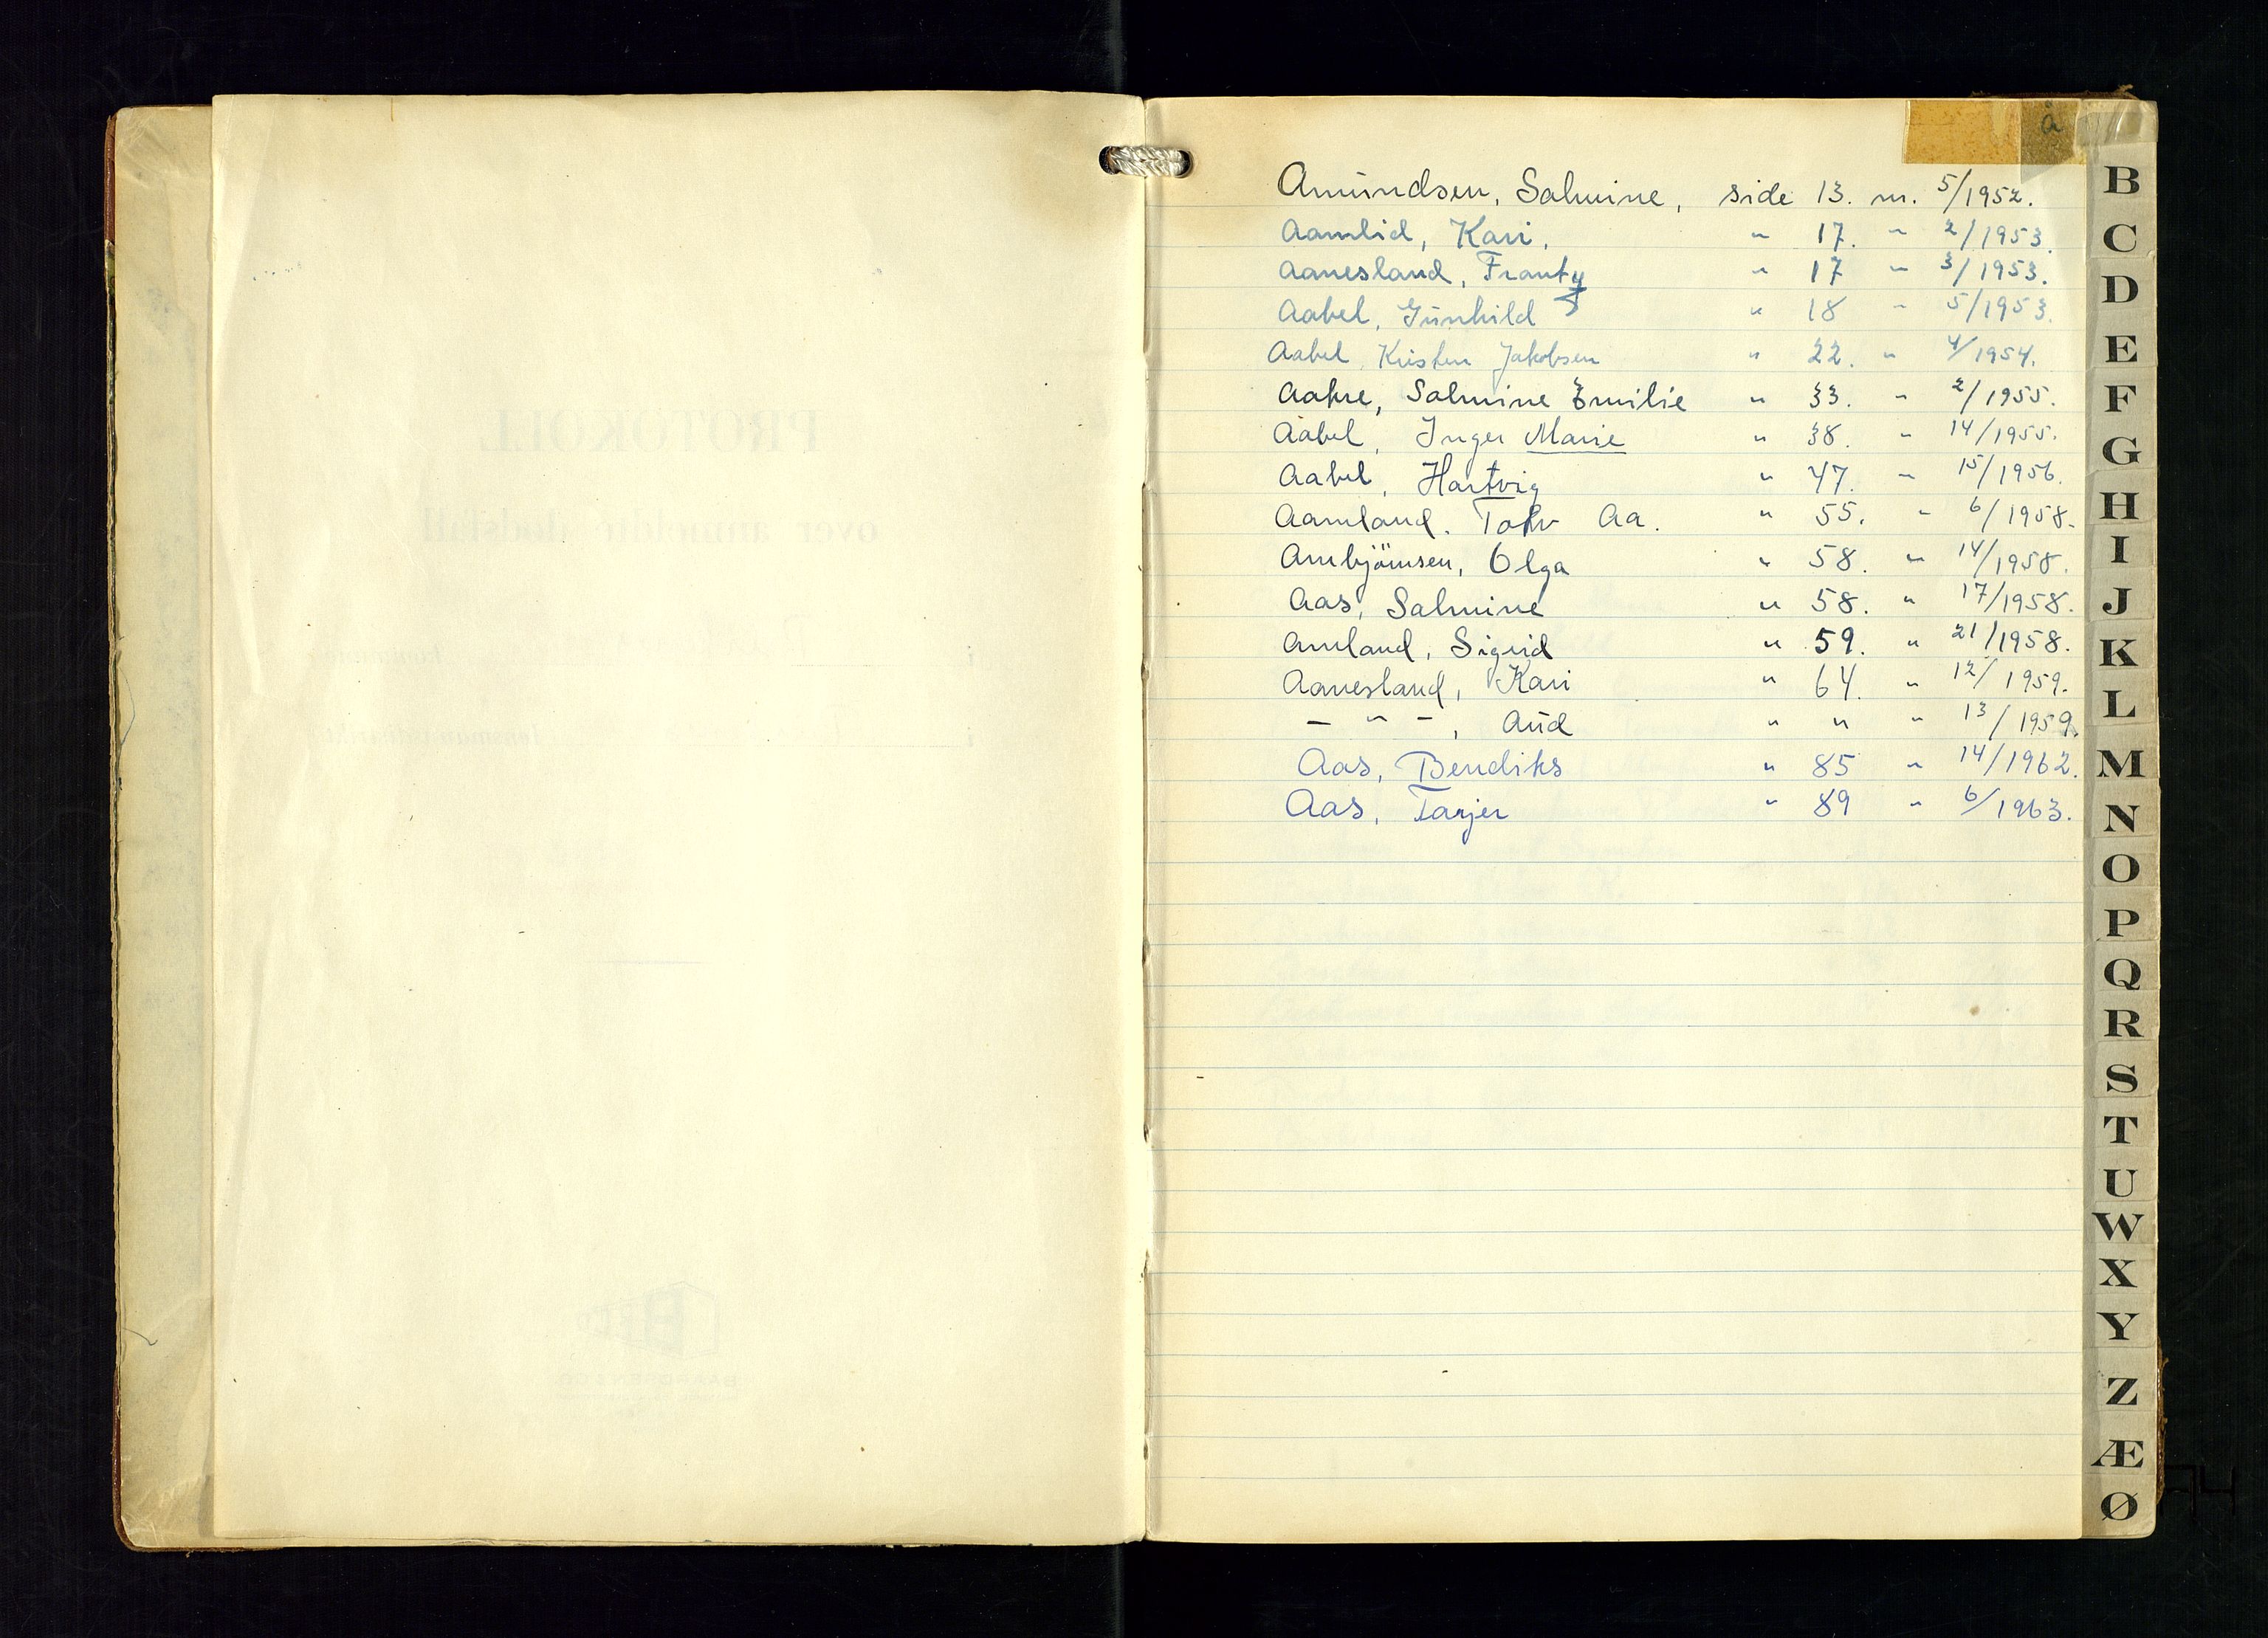 a
Amundsen, Salmine, side 13. nr. 5/1952.
Aamlid, Kari, " 17. " 2/1953.
Aanesland, Franty " 17 " 3/1953.
Aabel, Gunhild " 18 " 5/1953.
Aabel Kristen Jakobsen " 22. " 4/1954.
Aakre, Salmine Emilie " 33. " 2/1955.
Aabel, Inger Marie " 38. " 14/1955.
Aabel, Hartvig " 47. " 15/1956.
Aamland. Tolv Aa. " 55. " 6/1958.
Arnbjörnsen, Olga " 58. " 14/1958.
Aas, Salmine " 58. " 17/1958.
Amland, Sigrid " 59. " 21/1958.
Aanesland, Kari " 64. " 12/1959.
— " —, Aud " " " 13/1959.
Aas, Bendiks " 85 " 14/1962.
Aas, Tarjer " 89 " 6/1963.
B
C
D
E
F
G
H
I
J
K
L
M
N
O
P
Q
R
S
T
U
W
X
Y
Z
Æ
Ø
PROTOKOLL
over anmeldte dødsfall
i
i lensmannsdistrikt